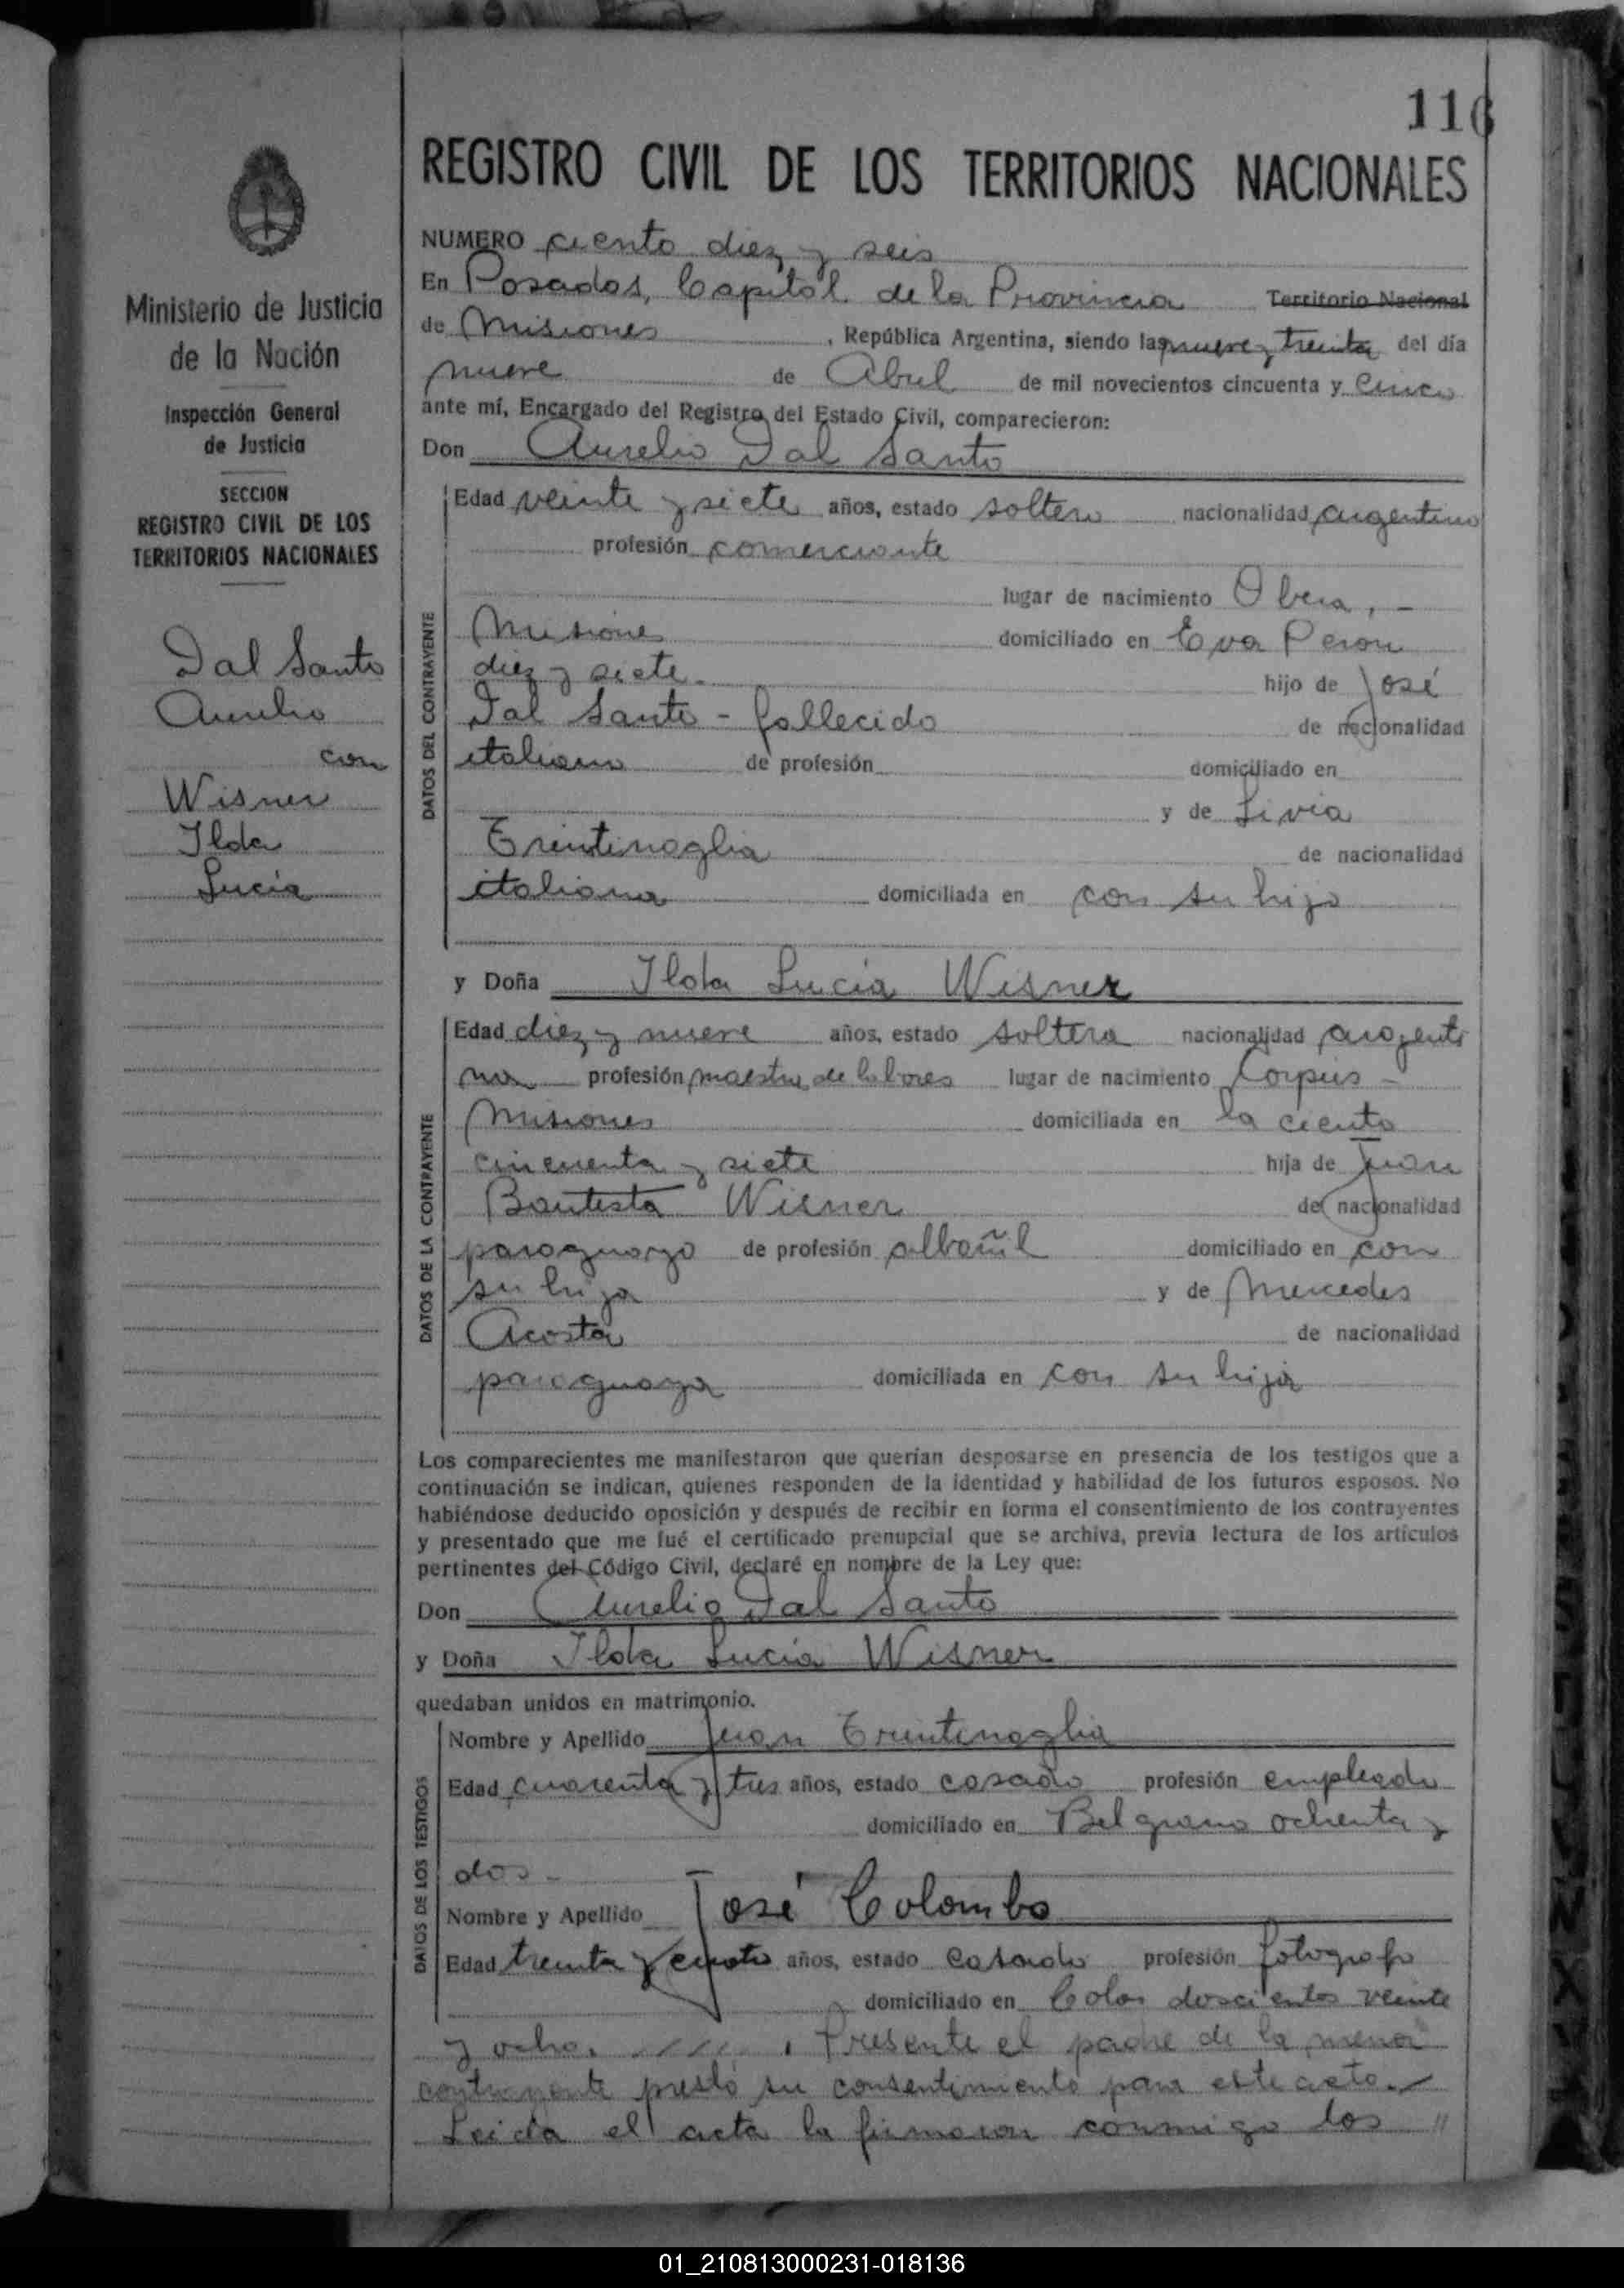 116
REGISTRO CIVIL DE LOS TERRITORIOS NACIONALES
Ministerio de Justicia
de la Nación
Inspección General
de Justicia
SECCION
REGISTRO CIVIL DE LOS
TERRITORIOS NACIONALES
Dal Santo
Aurelio
con
Wisner
Ilda
Lucía
NUMERO ciento diez y seis
En Posadas, Capital de la Provincia Territorio Nacional
de Misiones, República Argentina, siendo las nueve y treinta del día
nueve de Abril de mil novecientos cincuenta y cinco
ante mí, Encargado del Registro del Estado Civil, comparecieron:
Don Aurelio Dal Santo
DATOS DEL CONTRAYENTE
Edad veinte y siete años, estado soltero nacionalidad argentino
profesión comerciante
lugar de nacimiento Obera, -
Misiones domiciliado en Eva Peron
diez y siete. hijo de José
Dal Santo - fallecido de nacionalidad
italiano de profesión domiciliado en
y de Livia
Trentinaglia de nacionalidad
italiana domiciliada en con su hijo
y Doña Ilda Lucía Wisner
DATOS DE LA CONTRAYENTE
Edad diez y nueve años, estado soltera nacionalidad argenti
na profesión maestra de labores lugar de nacimiento Corpus -
Misiones domiciliada en la ciento
cincuenta y siete hija de Juan
Bautista Wisner de nacionalidad
paraguayo de profesión albañil domiciliado en con
su hija y de Mercedes
Acosta de nacionalidad
paraguaya domiciliada en con su hija
Los comparecientes me manifestaron que querían desposarse en presencia de los testigos que a
continuación se indican, quienes responden de la identidad y habilidad de los futuros esposos. No
habiéndose deducido oposición y después de recibir en forma el consentimiento de los contrayentes
y presentado que me fué el certificado prenupcial que se archiva, previa lectura de los artículos
pertinentes del Código Civil, declaré en nombre de la Ley que:
Don Aurelio Dal Santo
y Doña Ilda Lucía Wisner
quedaban unidos en matrimonio.
DATOS DE LOS TESTIGOS
Nombre y Apellido Juan Trentinaglia
Edad cuarenta y tres años, estado casado profesión empleado
domiciliado en Belgrano ochenta y
dos -
Nombre y Apellido José Colombo
Edad treinta y cuatro años, estado casado profesión fotografo
domiciliado en Colon doscientos veinte
y ocho. Presente el padre de la menor
contrayente prestó su consentimiento para este acto.
Leida el acta la firmaron conmigo los "
01_210813000231-018136